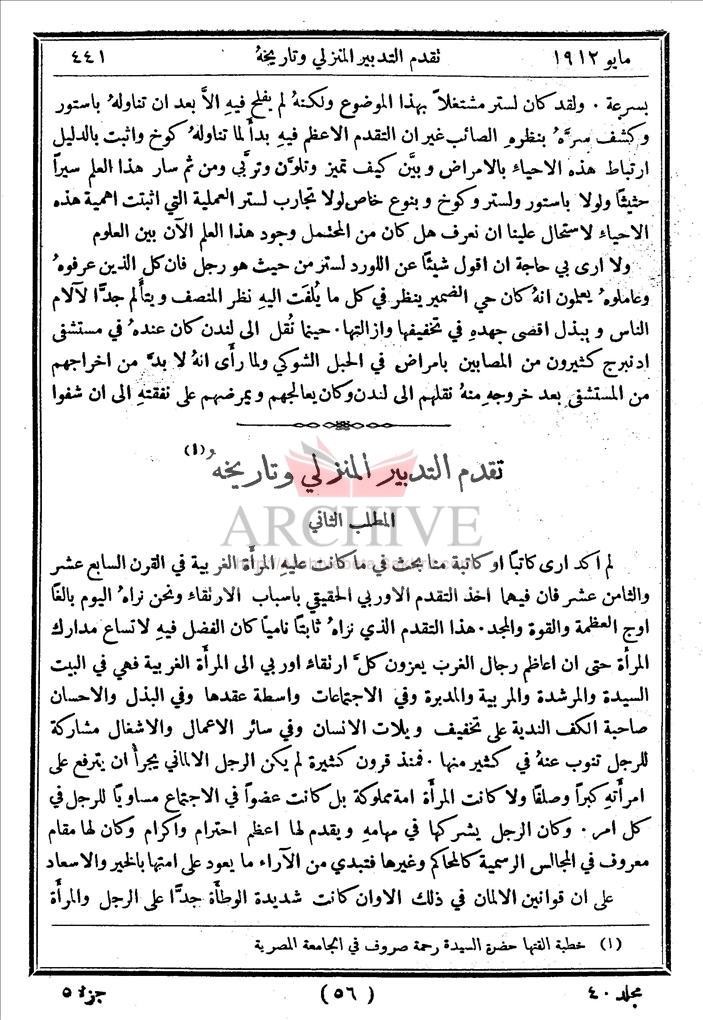 مايو ١٩١٢ تقدم التدبير المنزلي وتاريخهُ ٤٤١
بسرعة . ولقد كان لستر مشتغلاً بهذا الموضوع ولكنهُ لم يفلح فيهِ الاَّ بعد ان تناولهُ باستور
وكشف سرَّهُ بنظرهِ الصائب غير ان التقدم الاعظم فيهِ بدأ لما تناولهُ كوخ واثبت بالدليل
ارتباط هذه الاحياء بالامراض وبيَّن كيف تميز وتلوَّن وتربَّى ومن ثم سار هذا العلم سيراً
حثيثًا ولولا باستور ولستر وكوخ وبنوع خاص لولا تجارب لستر العملية التي اثبتت اهمية هذه
الاحياء لاستحال علينا ان نعرف هل كان من المحتمل وجود هذا العلم الآن بين العلوم
ولا ارى بي حاجة ان اقول شيئًا عن اللورد لستر من حيث هو رجل فان كل الذين عرفوهُ
وعاملوهُ يعلمون انهُ كان حي الضمير ينظر في كل ما يُلفَت اليهِ نظر المنصف ويتألم جدًّا لآلام
الناس ويبذل اقصى جهدهِ في تخفيفها وازالتها. حينما نُقل الى لندن كان عندهُ في مستشفى
ادنبرج كثيرون من المصابين بامراض في الحبل الشوكي ولما رأى انهُ لا بدَّ من اخراجهم
من المستشفى بعد خروجهِ منهُ نقلهم الى لندن وكان يعالجهم ويمرضهم على نفقتهِ الى ان شفوا
تقدم التدبير المنزلي وتاريخهُ (١)
ARCHIVE
المطلب الثاني
لم اكد ارى كاتبًا او كاتبة منا بحث في ما كانت عليهِ المرأة الغربية في القرن السابع عشر
والثامن عشر فان فيهما اخذ التقدم الاوربي الحقيقي باسباب الارتقاء ونحن نراهُ اليوم بالغًا
اوج العظمة والقوة والمجد. هذا التقدم الذي نراهُ ثابتًا ناميًا كان الفضل فيهِ لاتساع مدارك
المرأة حتى ان اعاظم رجال الغرب يعزون كلَّ ارتقاء اوربي الى المرأة الغربية فهي في البيت
السيدة والمرشدة والمربية والمدبرة وفي الاجتماعات واسطة عقدها وفي البذل والاحسان
صاحبة الكف الندية على تخفيف ويلات الانسان وفي سائر الاعمال والاشغال مشاركة
للرجل تنوب عنهُ في كثير منها . فمنذ قرون كثيرة لم يكن الرجل الالماني يجرأ ان يترفع على
امرأتهِ كبراً وصلفًا ولا كانت المرأة امة مملوكة بل كانت عضواً في الاجتماع مساويًا للرجل في
كل امر . وكان الرجل يشركها في مهامهِ ويقدم لها اعظم احترام واكرام وكان لها مقام
معروف في المجالس الرسمية كالمحاكم وغيرها فتبدي من الآراء ما يعود على امتها بالخير والاسعاد
على ان قوانين الالمان في ذلك الاوان كانت شديدة الوطأة جدًّا على الرجل والمرأة
(١) خطبة القتها حضرة السيدة رحمة صروف في الجامعة المصرية
مجلد ٤٠ (٥٦) جزء ٥